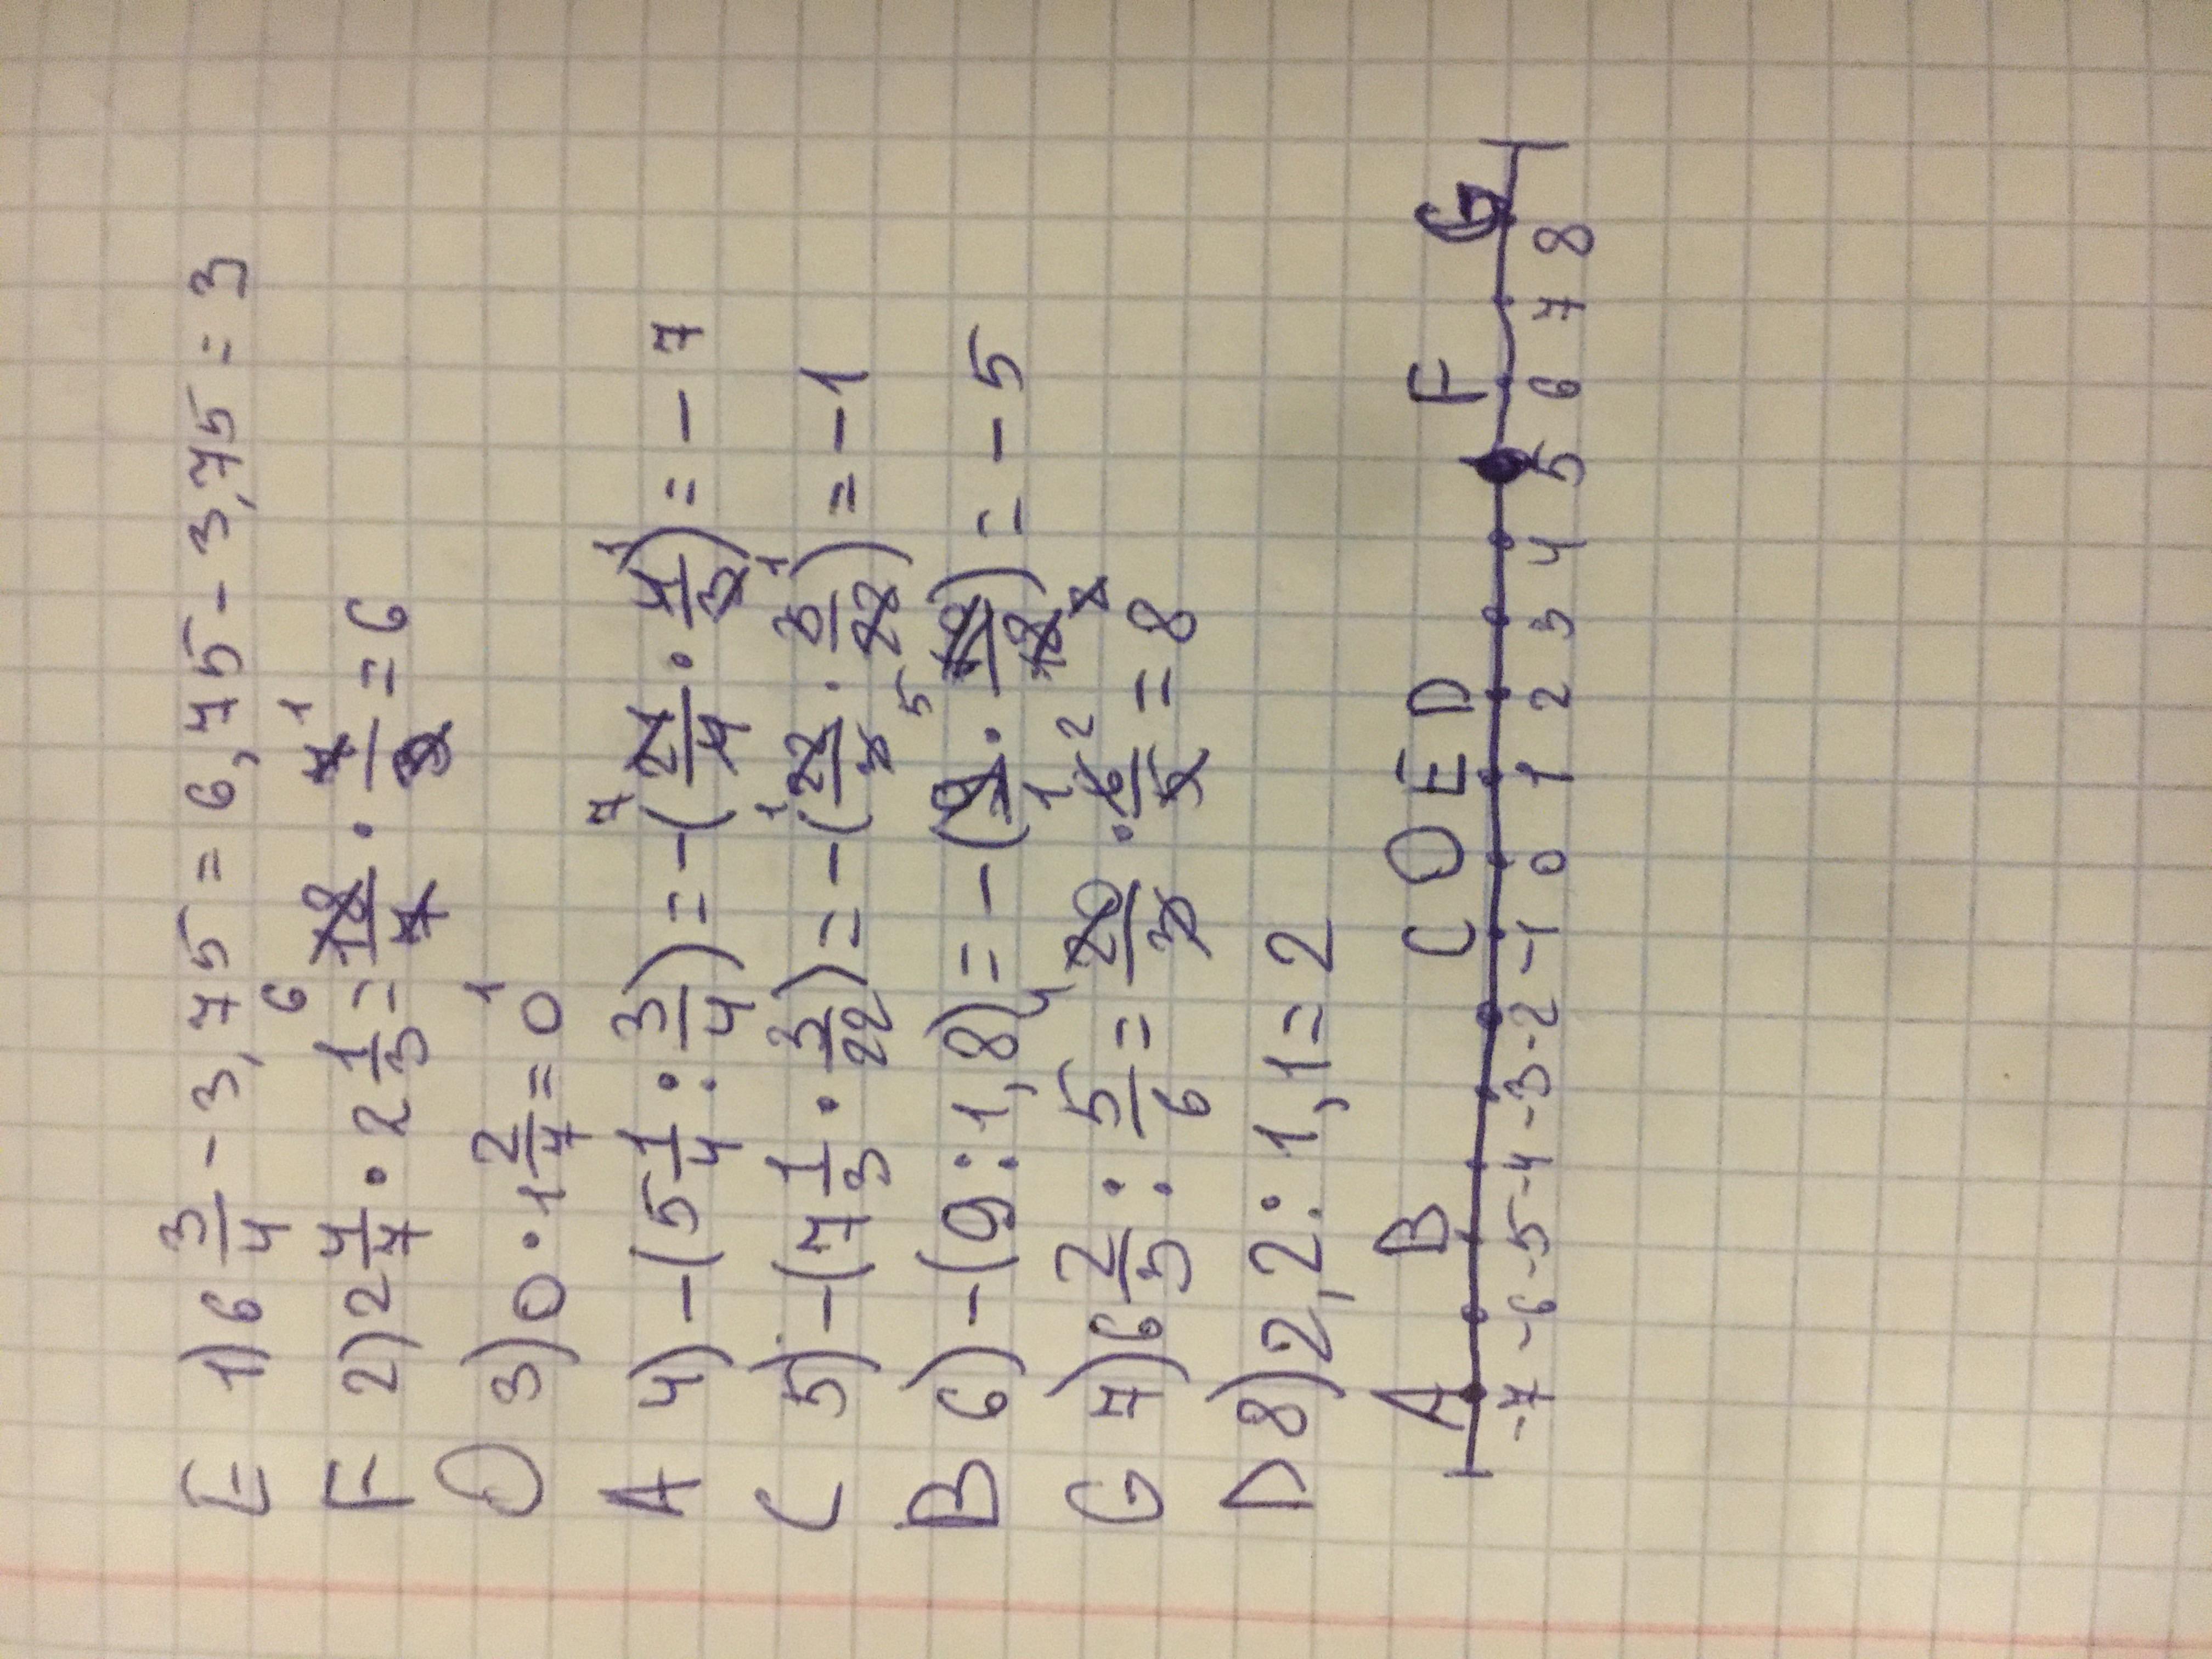 E 1) 6 3/4 - 3,75 = 6,75 - 3,75 = 3
F 2) 2 4/7 · 2 1/3 = 18/7 · 7/3 = 6
O 3) 0 · 1 2/7 = 0
A 4) -(5 1/4 : 3/4) = -(21/4 · 4/3) = -7
C 5) -(7 1/3 · 3/22) = -(22/3 · 3/22) = -1
B 6) -(9 : 1,8) = -( · ) = -5
G 7) 6 2/3 : 5/6 = 20/3 · 6/5 = 8
D 8) 2,2 : 1,1 = 2
A B C O E D F G
-7 -6 -5 -4 -3 -2 -1 0 1 2 3 4 5 6 7 8